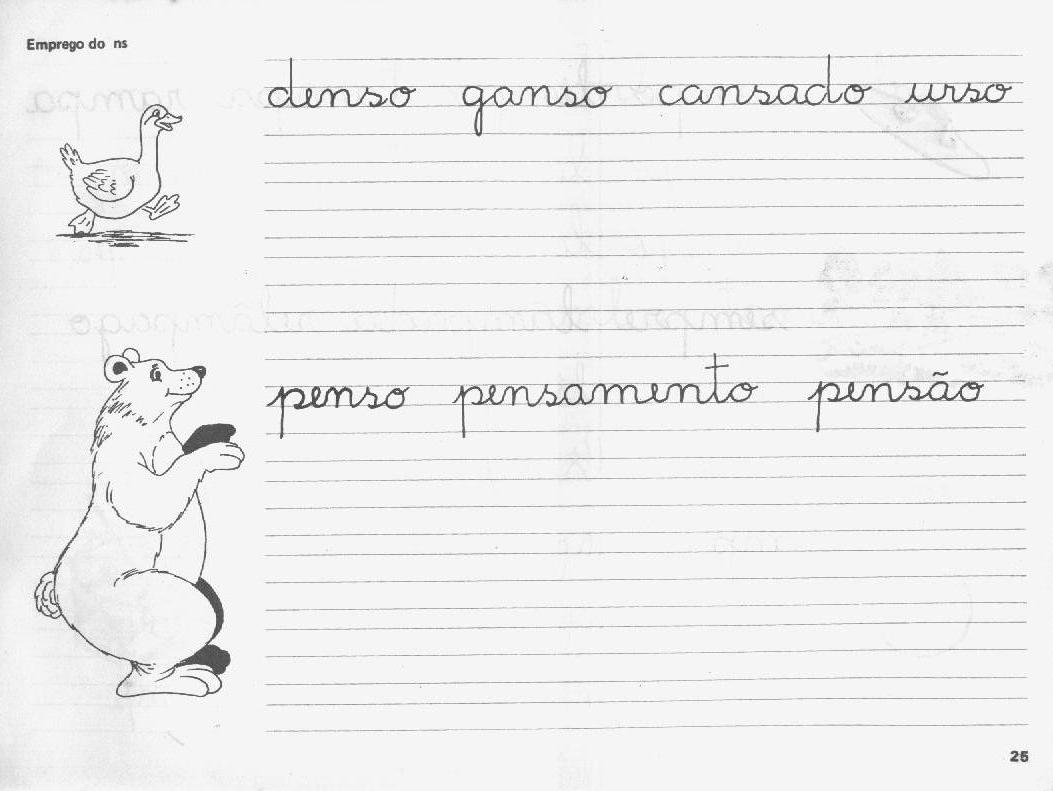 Emprego do ns
denso ganso cansado urso
penso pensamento pensão
25